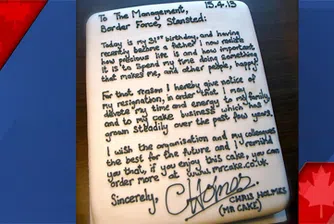 To The Management, 15.4.13
Border Force, Stansted:
Today is my 31st birthday, and having
recently become a father I now realise
how precious life is and how important
it is to spend my time doing something
that makes me, and other people, happy.
For that reason I hereby give notice of
my resignation, in order that I may
devote my time and energy to my family
and to my cake business which has
grown steadily over the past few years.
I wish the organisation and my colleagues
the best for the future and I remind
you that, if you enjoy this cake, you can
order more at www.mrcake.co.uk.
Sincerely, CHolmes
CHRIS HOLMES
(MR CAKE)